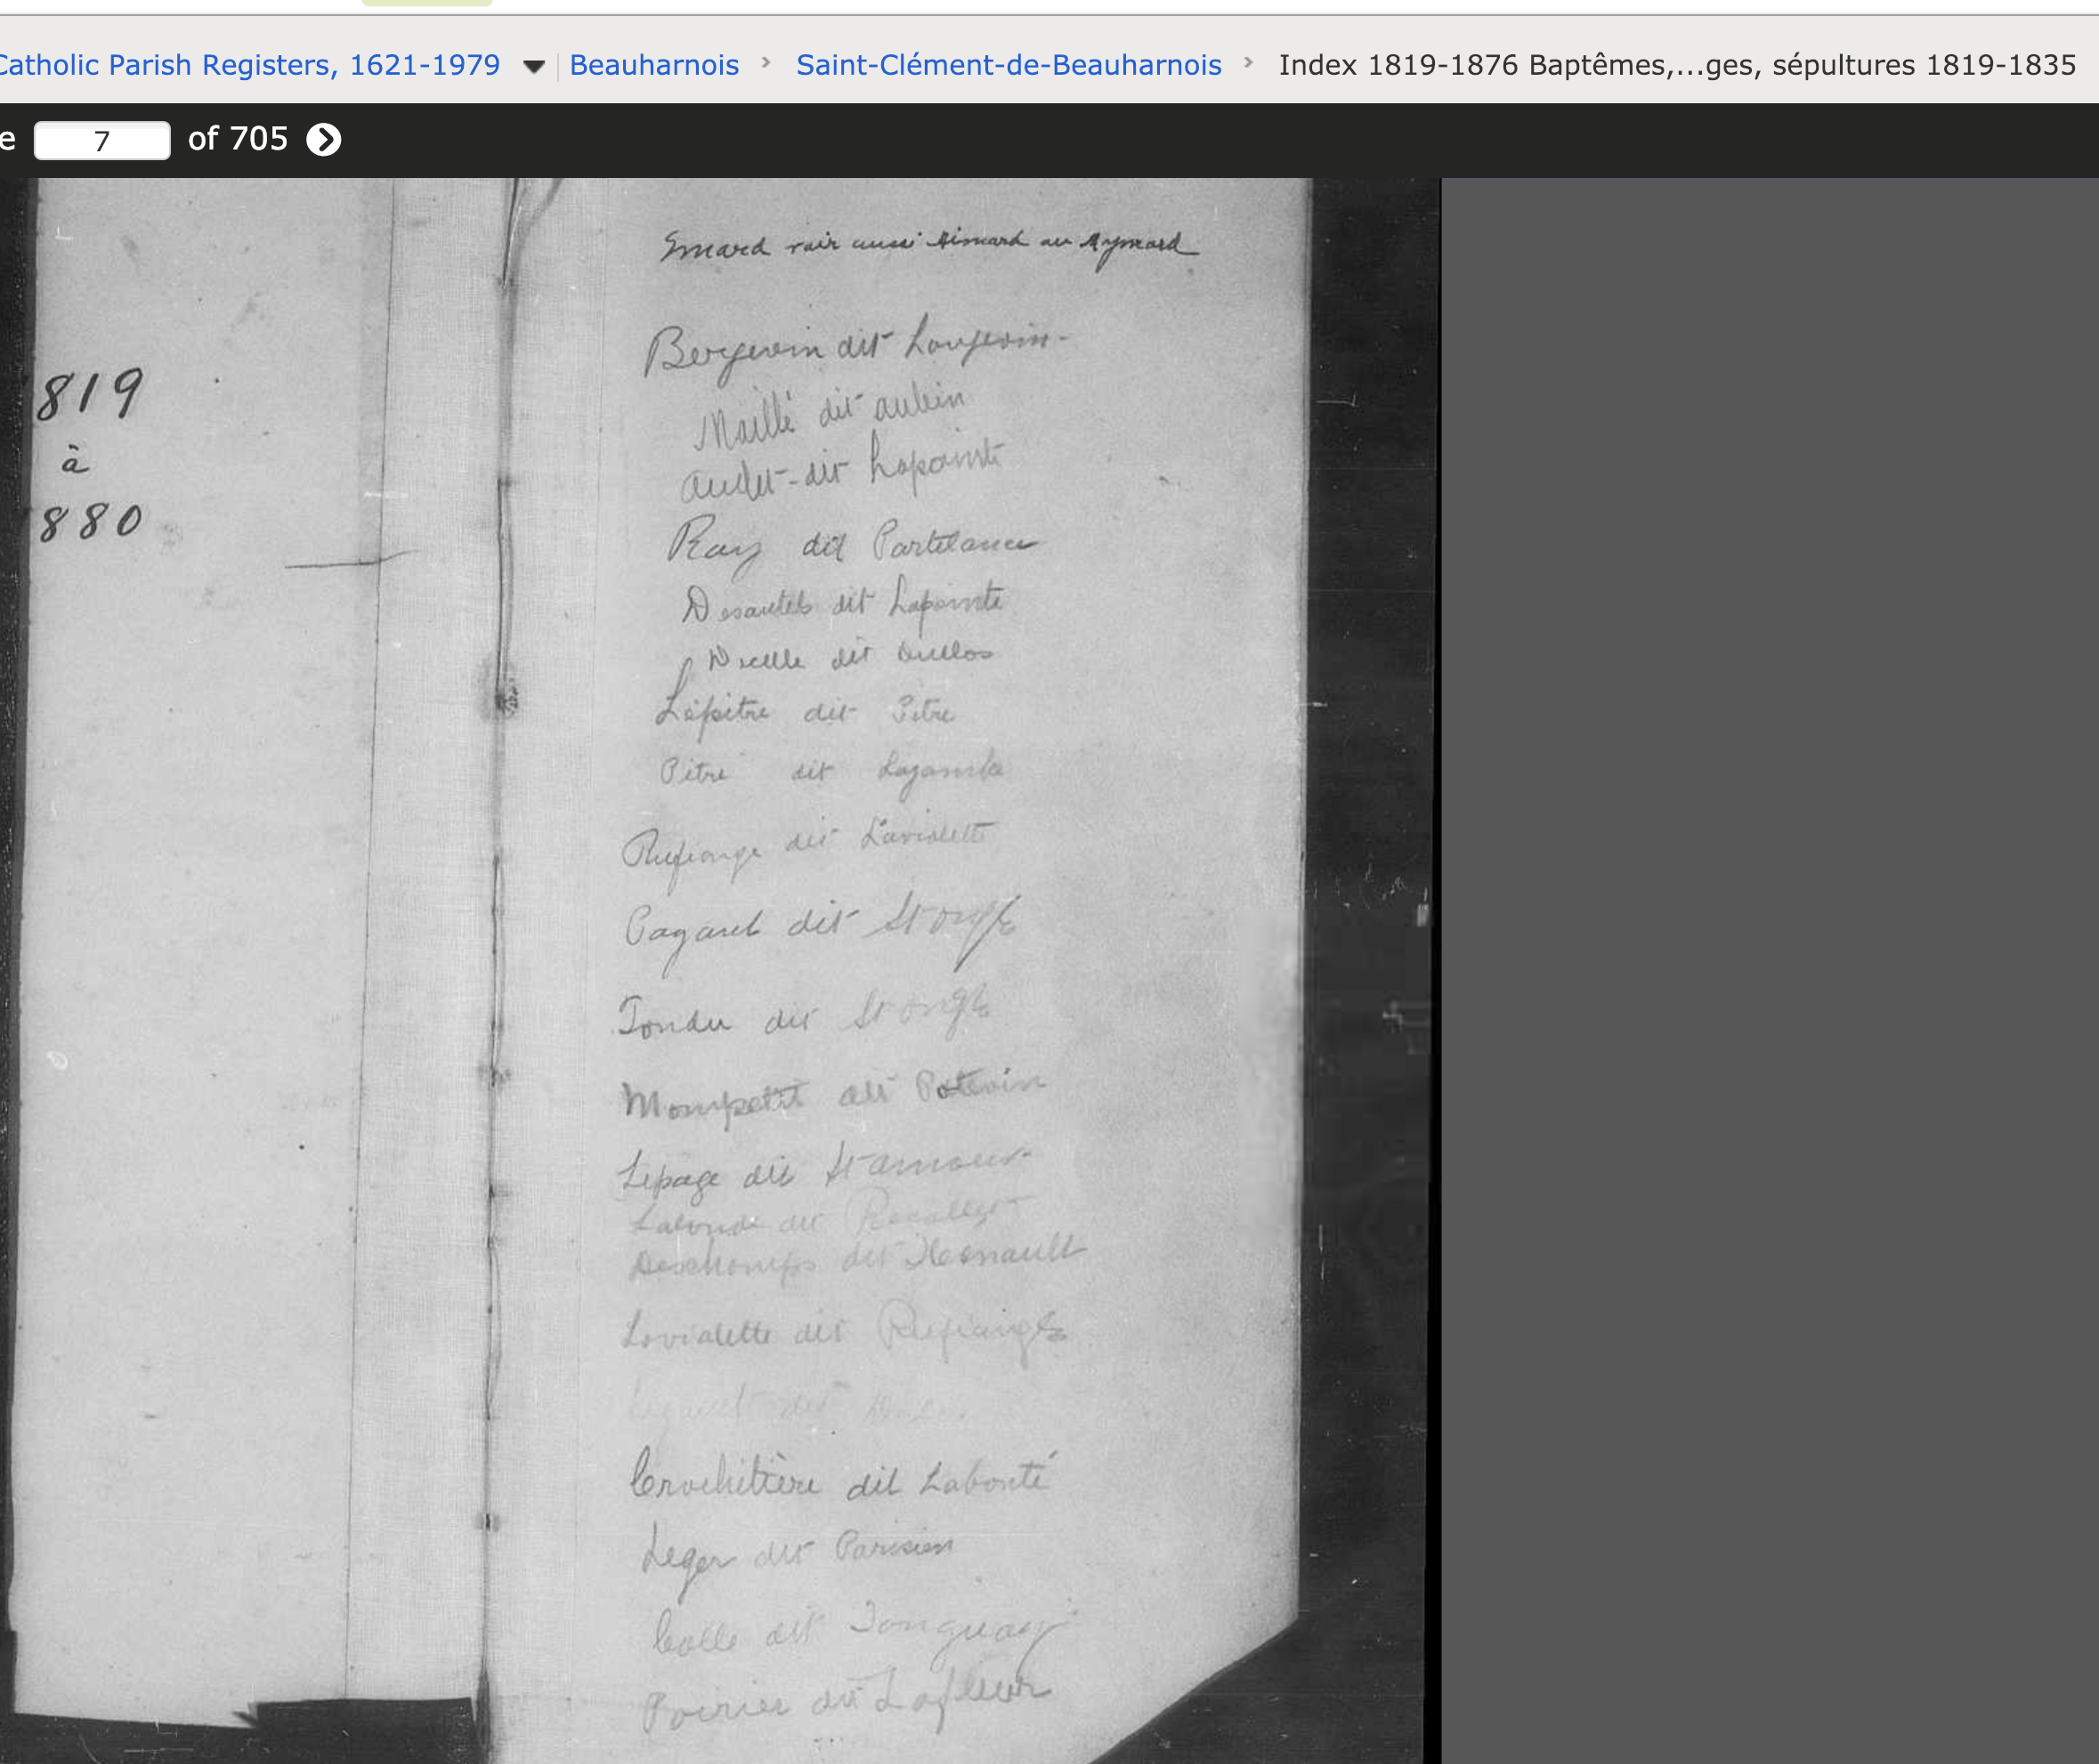 Catholic Parish Registers, 1621-1979 Beauharnois › Saint-Clément-de-Beauharnois › Index 1819-1876 Baptêmes,...ges, sépultures 1819-1835
e 7 of 705
819
à
880
Emard voir aussi Aimard ou Aymard
Bergevin dit Langevin
Maillé dit aubin
audet-dit Lapointe
Ray dit Partelance
Desautels dit Lapointe
dit Duclos
Lépitre dit Pitre
Pitre dit Lajambe
Rufiange dit Laviolette
dit St onge
Tondu dit St onge
Mompetit dit Potevin
Lepage dit St amour
Lalonde dit
Deschamps dit Hesnault
Laviolette dit Rufiange
dit
Crochitière dit Labonté
Leger dit Parisien
dit Tanguay
Poirier dit Lafleur